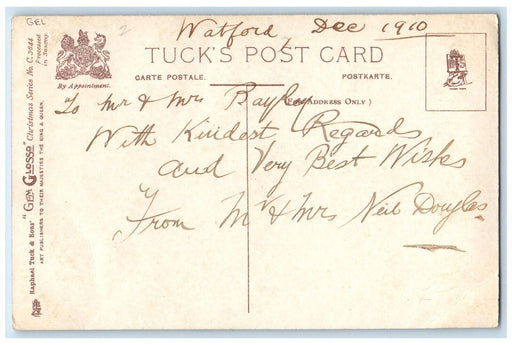 GEL
2
Watford, Dec 1910
TUCK'S POST CARD
By Appointment.
CARTE POSTALE.
POSTKARTE.
(For Address Only)
To Mr & Mrs Bayley
With Kindest Regards
and Very Best Wishes
From Mr & Mrs Neil Douglas
Raphael Tuck & Sons' "GEM GLOSSO" Christmas Series No. C. 3644
ART PUBLISHERS TO THEIR MAJESTIES THE KING & QUEEN.
Processed in Saxony